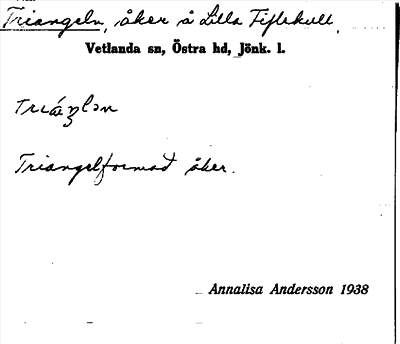 Triangeln, åker å Lilla Fiflekull,
Vetlanda sn, Östra hd, Jönk. l.
Triáŋlən
Triangelformad åker.
Annalisa Andersson 1938